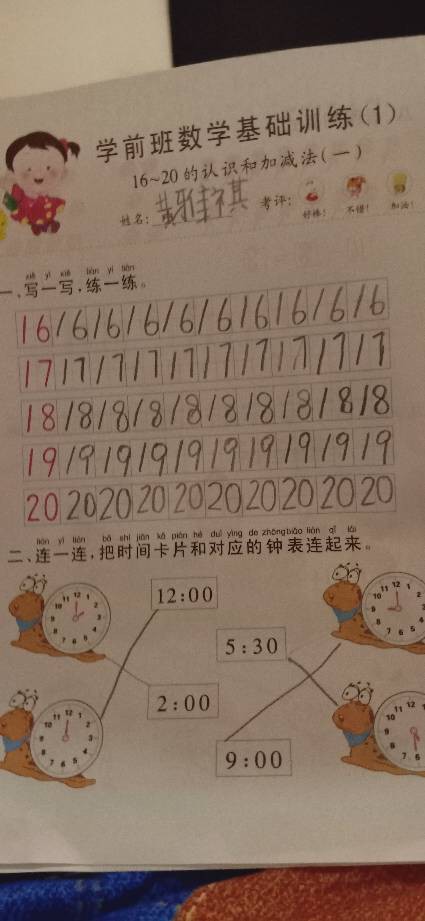 学前班数学基础训练(1)
16~20的认识和加减法(一)
姓名: 黄雅琪 考评: 好棒! 不错! 加油!
xiě yì xiě liàn yí liàn
一、写一写,练一练。
16 16 16 16 16 16 16 16 16 16
17 17 17 17 17 17 17 17 17 17
18 18 18 18 18 18 18 18 18 18
19 19 19 19 19 19 19 19 19 19
20 20 20 20 20 20 20 20 20 20
lián yì lián bǎ shí jiān kǎ piàn hé duì yìng de zhōng biǎo lián qǐ lái
二、连一连,把时间卡片和对应的钟表连起来。
12:00
5:30
2:00
9:00